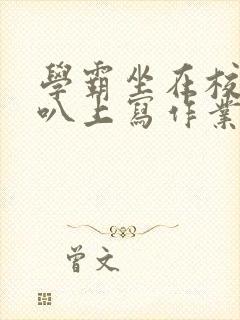 學霸坐在校
叭上寫作業
曾文